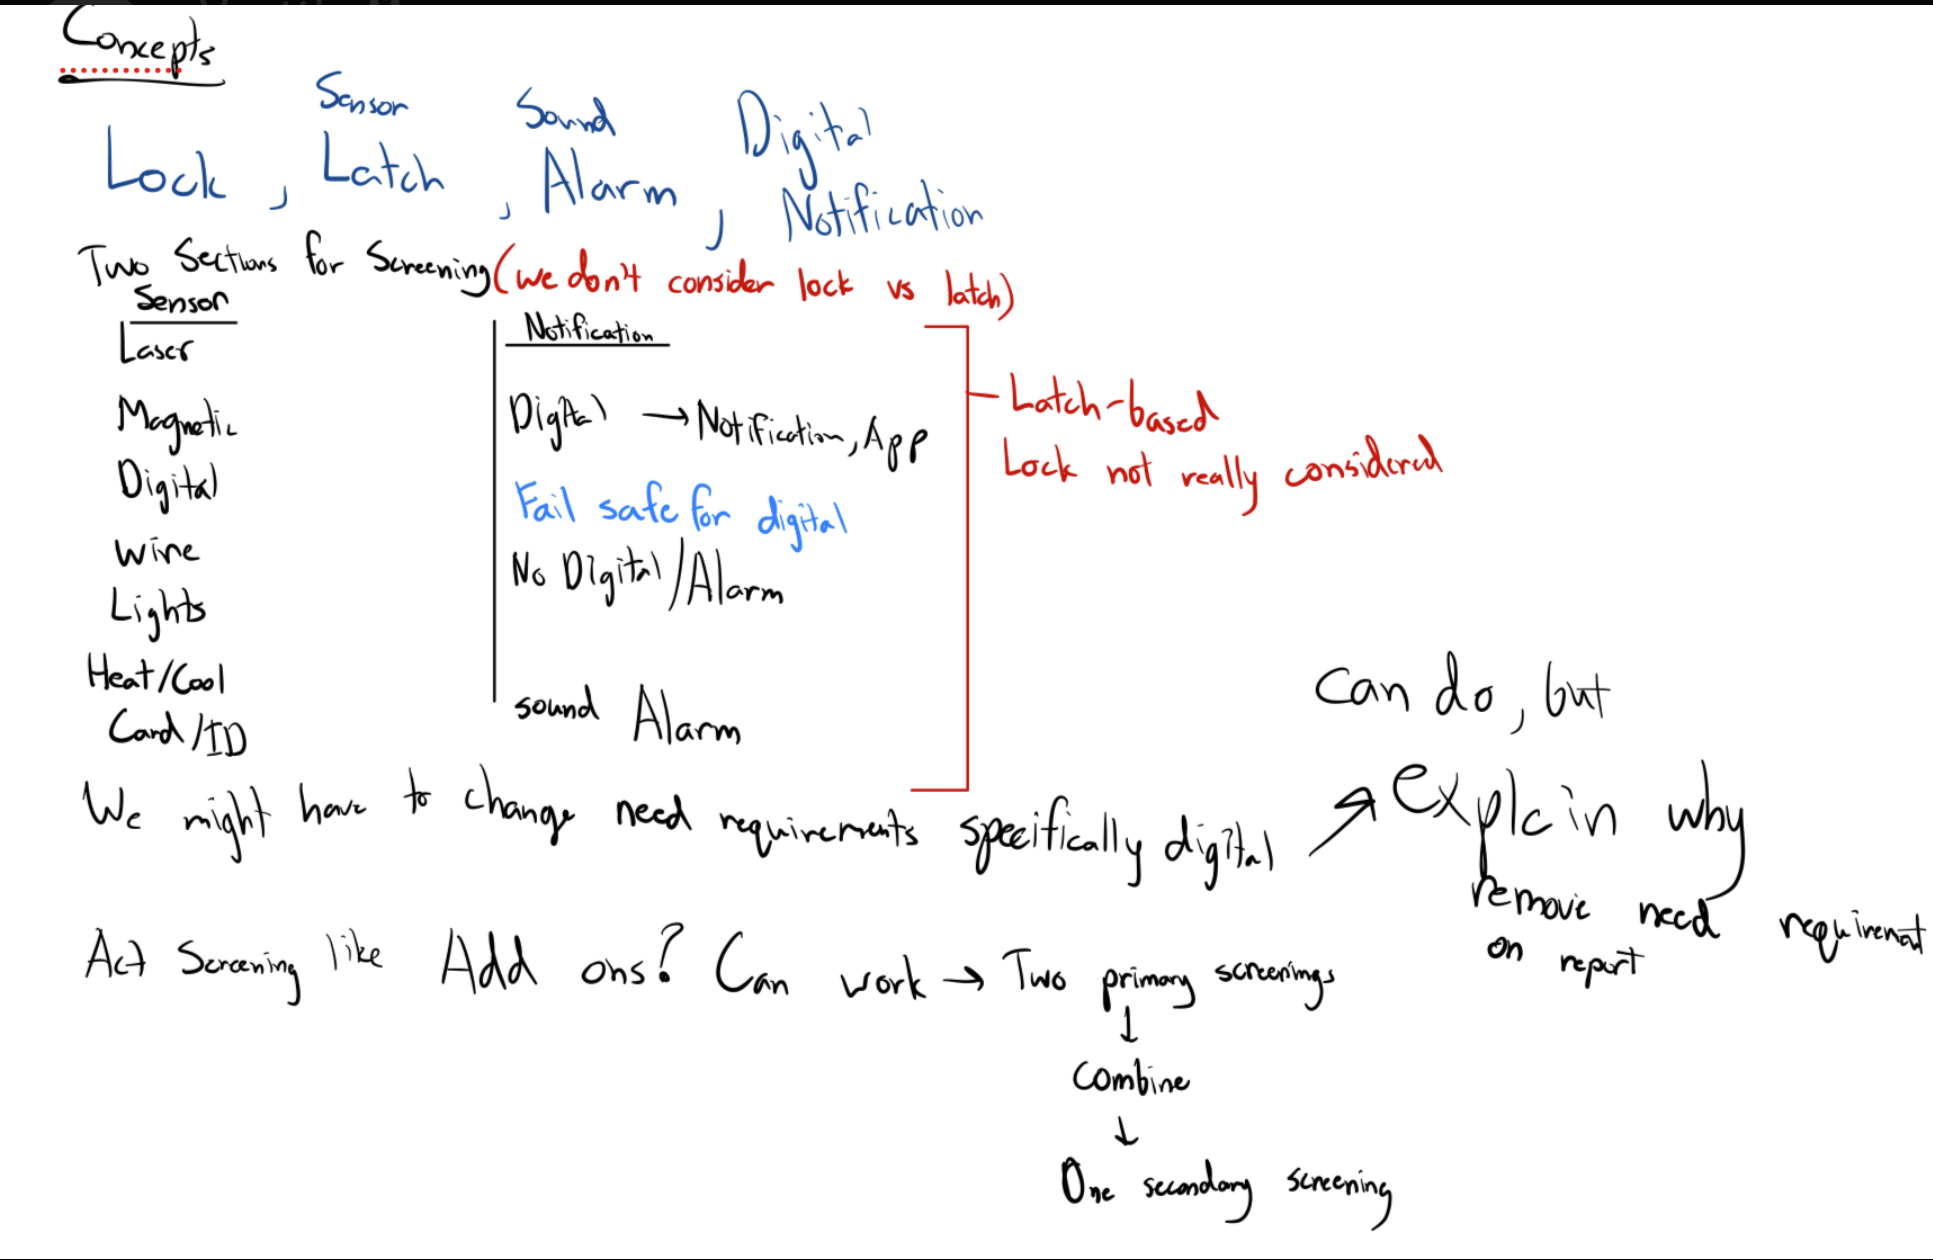 Concepts
Sensor Sound Digital
Lock, Latch, Alarm, Notification
Two Sections for Screening (we don't consider lock vs latch)
Sensor
Laser
Magnetic
Digital
Wire
Lights
Heat/Cool
Card/ID
Notification
Digital → Notification, App
Fail safe for digital
No Digital/Alarm
sound Alarm
Latch-based
Lock not really considered
We might have to change need requirements specifically digital
Can do, but
explain why
remove need requirement
on report
Act Screening like Add ons? Can work → Two primary screenings
↓
Combine
↓
One secondary screening